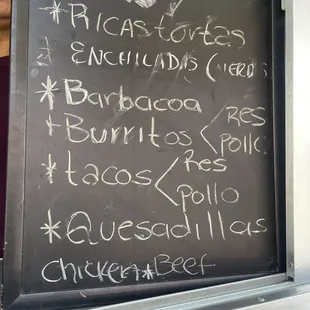 *RICAStortas
*ENCHILADAS (VERDES
*Barbacoa
*Burritos < Res
Pollo
*tacos < Res
Pollo
*Quesadillas
Chicken*Beef